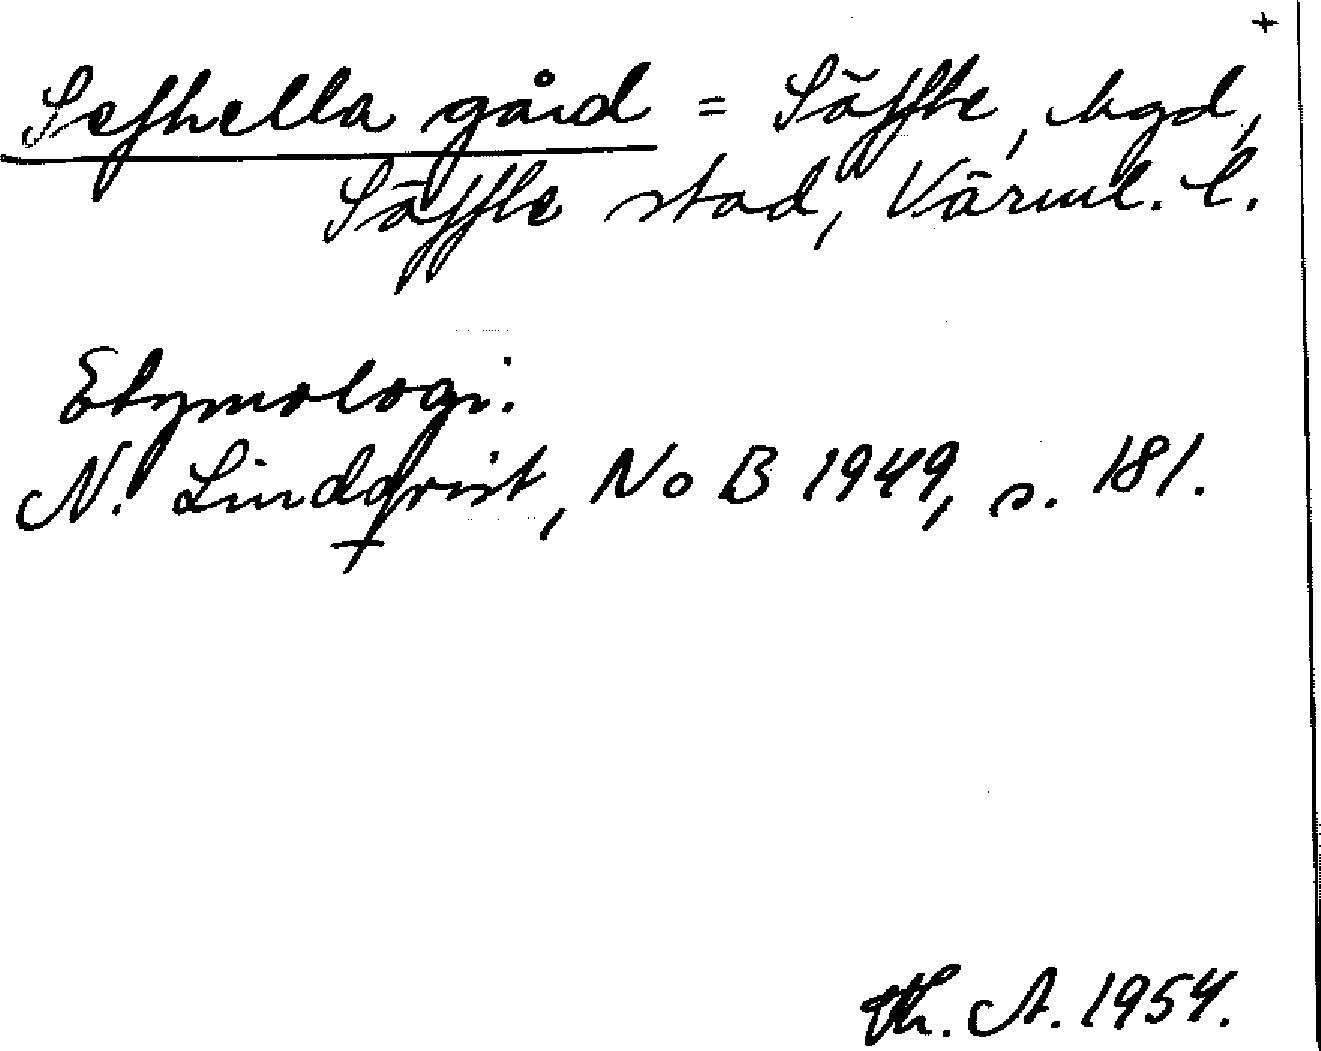 +
Sefhella gård = Säffle, bgd,
Säffle stad, Värml. l.
Etymologi.
N. Lindqvist, NoB 1949, s. 181.
Th. A. 1954.